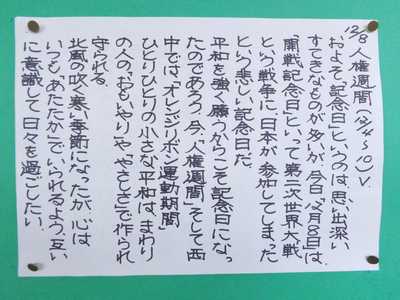 12/8 人権週間(12/4~10)V.
およそ「記念日」というのは、思い出深い
すてきなものが多いが、今日12月8日は、
「開戦記念日」といって第二次世界大戦
という戦争に日本が参加してしまった
という悲しい記念日だ。
平和を強く願うからこそ記念日になっ
たのであろう。今、「人権週間」そして西
中では、「オレンジリボン運動期間」
ひとりひとりの小さな平和は、まわり
の人の「おもいやり」や「やさしさ」で作られ、
守られる。
北風の吹く寒い季節になったが、心は
いつも「あたたか」でいられるよう、互い
に意識して日々を過ごしたい。